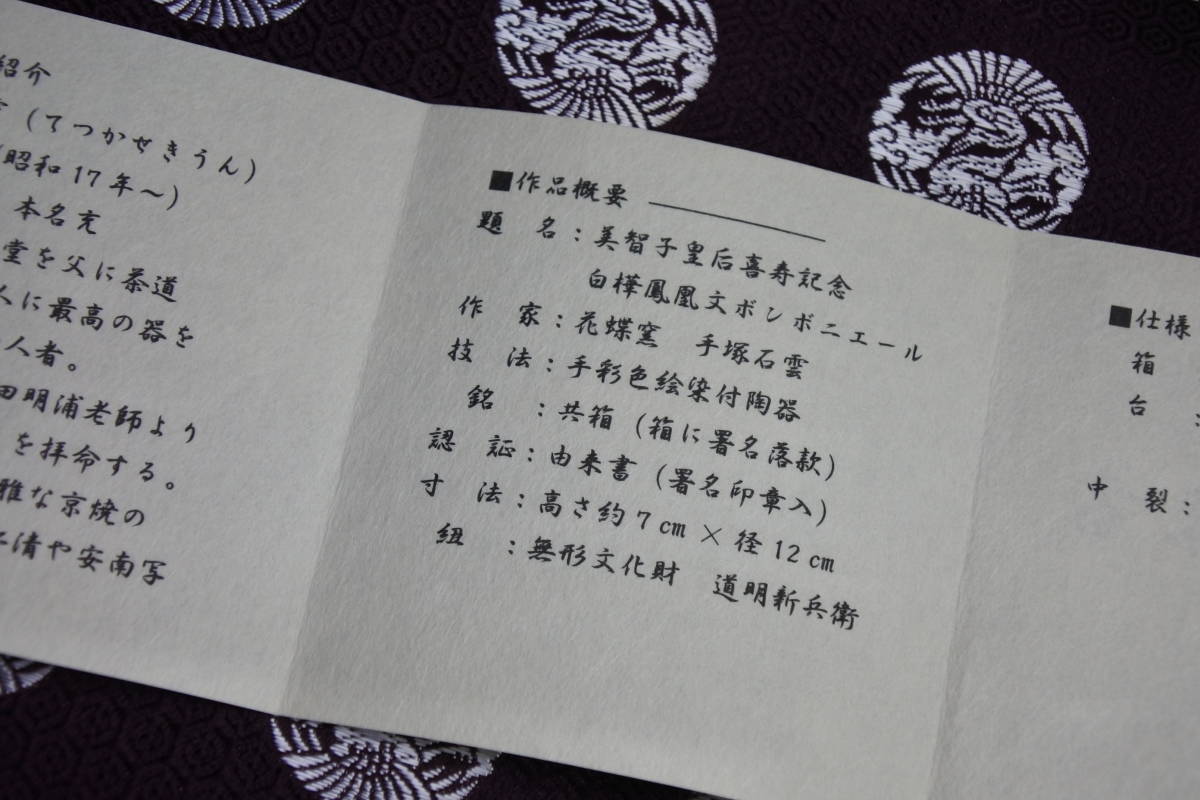 紹介
(てつかせきうん)
(昭和17年～)
本名充
堂を父に茶道
人に最高の器を
人者。
田明浦老師より
を拝命する。
雅な京焼の
清や安南写
■作品概要
題 名：美智子皇后喜寿記念
白樺鳳凰文ボンボニエール
作 家：花蝶窯 手塚石雲
技 法：手彩色絵染付陶器
銘 ：共箱(箱に署名落款)
認 証：由来書(署名印章入)
寸 法：高さ約7cm×径12cm
紐 ：無形文化財 道明新兵衛
■仕様
箱
台 :
中 裂：